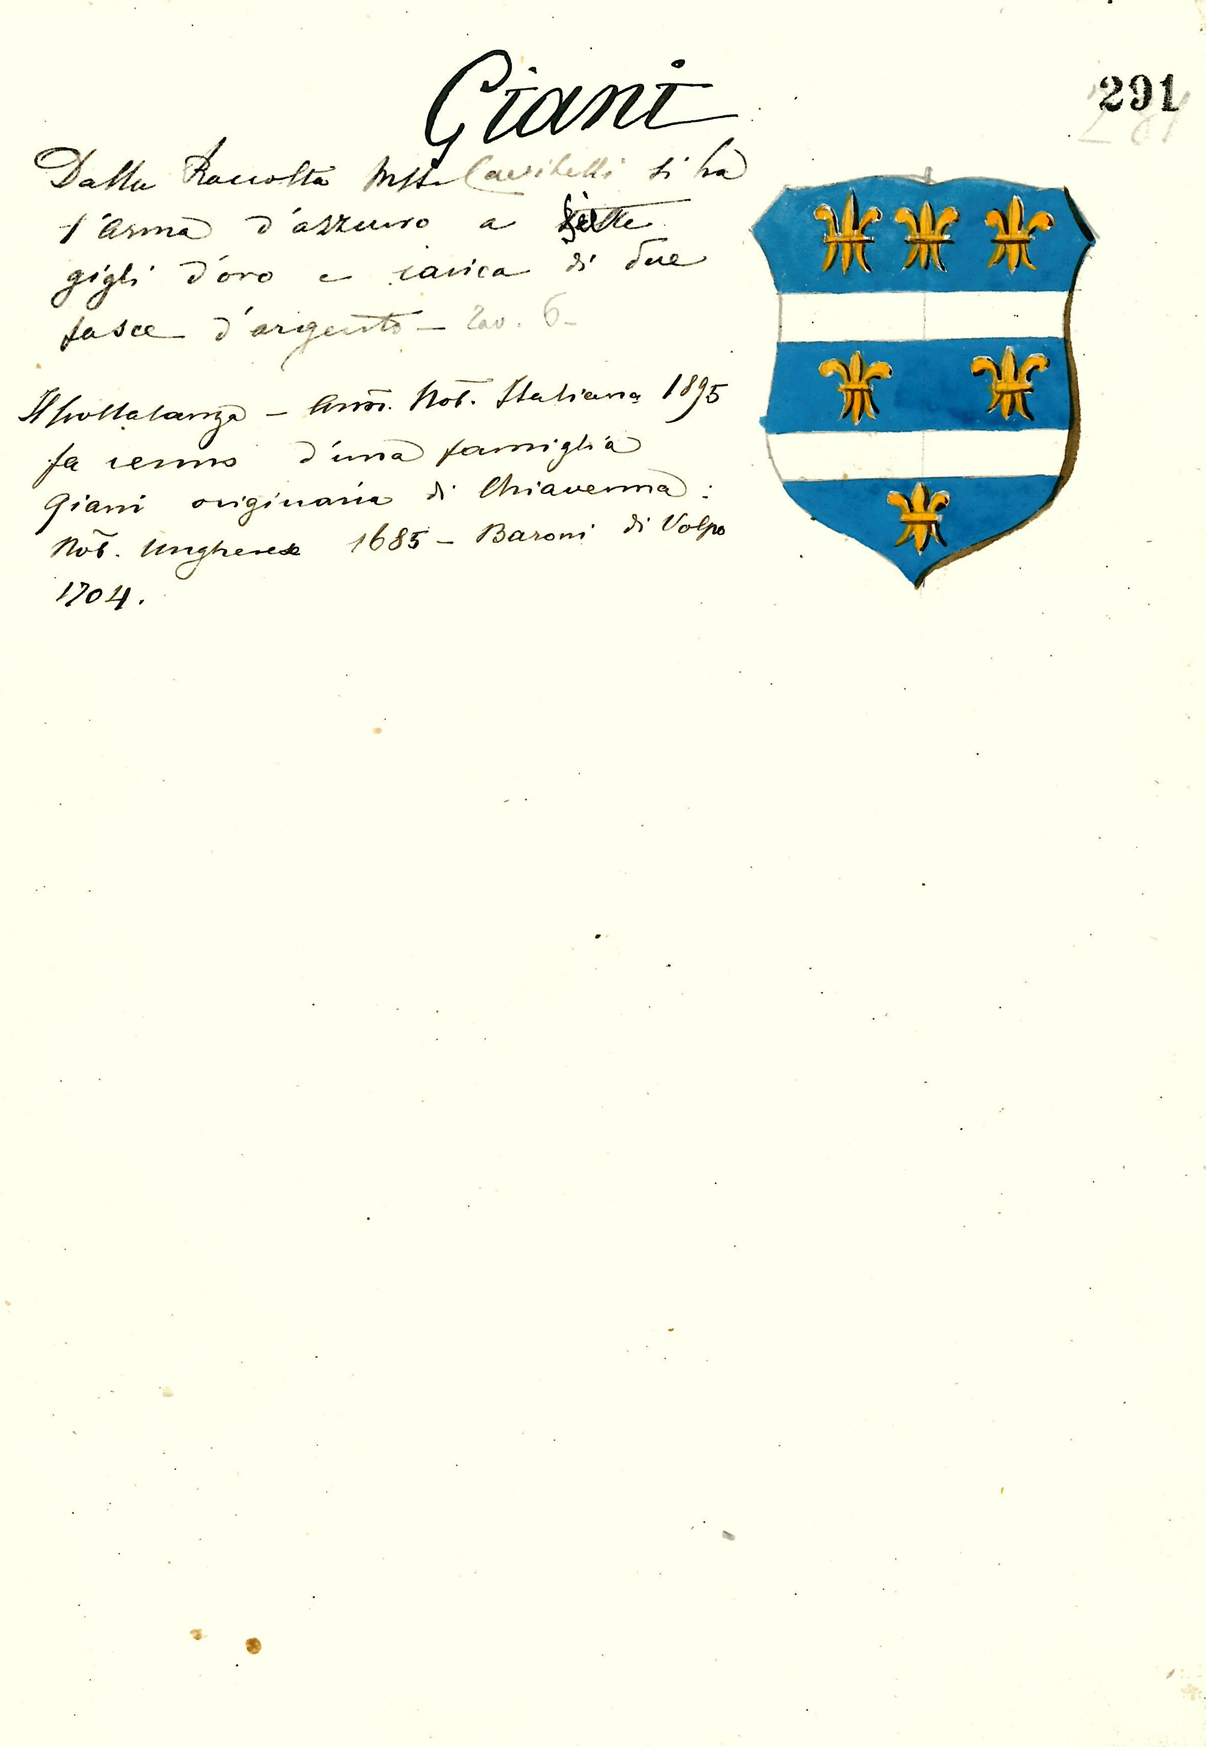 Giani
291
Dalla Raccolta Mss. Cavitelli si ha
l'arma d'azzurro a sei
gigli d'oro e carica di due
fasce d'argento – Tav. 6 –
– Ann. Nob. Italiana 1895
fa cenno d'una famiglia
Giani originaria di Chiavenna:
Nob. Ungherese 1685 – Baroni di Volpo
1704.